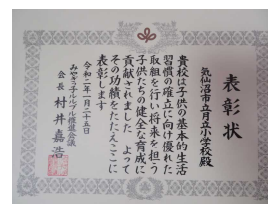 表彰状
気仙沼市立月立小学校殿
貴校は子供の基本的生活
習慣の確立に向け優れた
取組を行い将来を担う
子供たちの健全な育成に
貢献されました よって
その功績をたたえここに
表彰します
令和二年一月二十五日
みやぎっ子ルルブル推進会議
会長 村井嘉浩